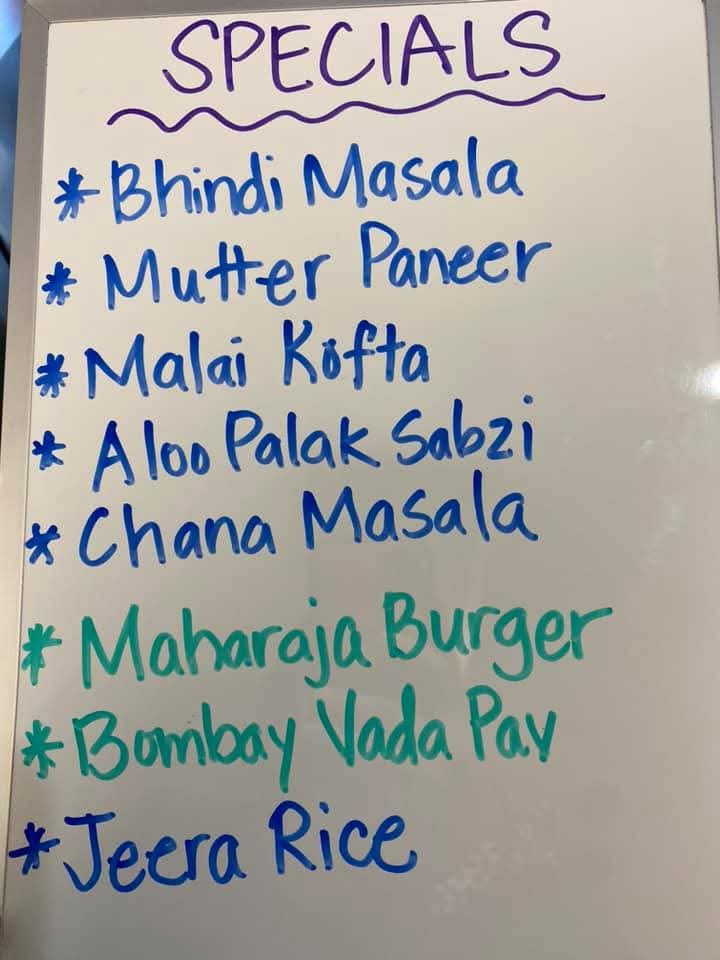 SPECIALS
* Bhindi Masala
* Mutter Paneer
* Malai Kofta
* Aloo Palak Sabzi
* Chana Masala
* Maharaja Burger
* Bombay Vada Pav
* Jeera Rice